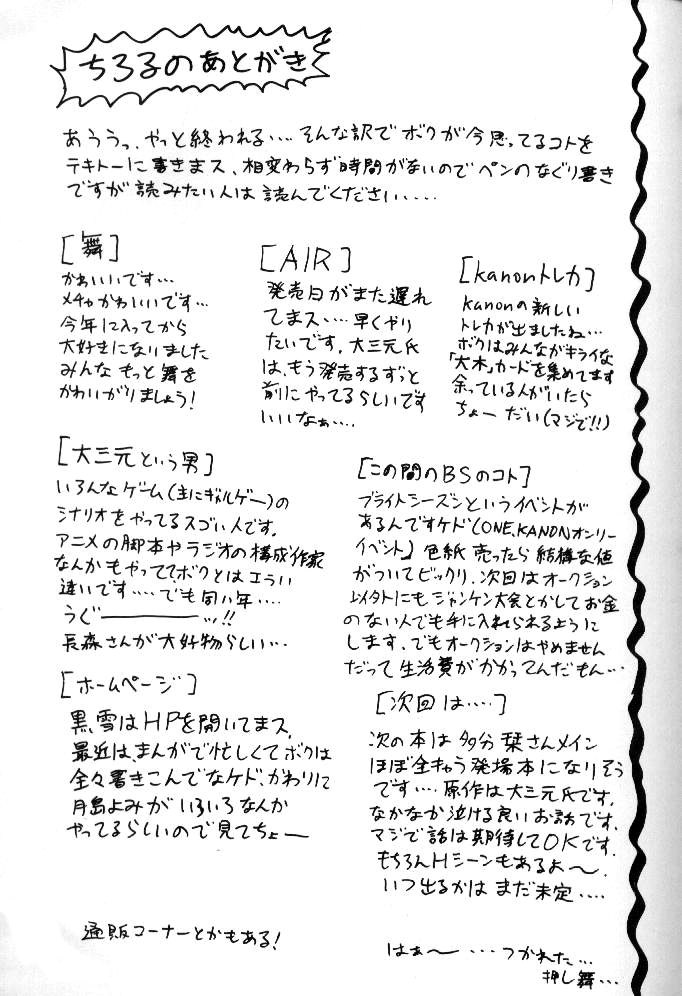 ちろるのあとがき
あううっ、やっと終われる‥‥そんな訳でボクが今思ってるコトを
テキトーに書きまス、相変わらず時間がないのでペンのなぐり書き
ですが読みたい人は読んでください‥‥
[舞]
かわいいです…
メチャかわいいです…
今年に入ってから
大好きになりました
みんなもっと舞を
かわいがりましょう!
[AIR]
発売日がまた遅れ
てまス‥‥早くやり
たいです。大三元氏
は、もう発売するずっと
前にやってるらしいです
いいなぁ‥‥
[kanonトレカ]
kanonの新しい
トレカが出ましたね…
ボクはみんながキライな
「大木」カードを集めてます
余っている人がいたら
ちょーだい(マジで!!)
[大三元という男]
いろんなゲーム(主にギャルゲー)の
シナリオをやってるスゴい人です。
アニメの脚本やラジオの構成作家
なんかもやっててボクとはエラい
違いです‥‥でも同い年‥‥
うぐーーーーーッ!!
長森さんが大好物らしい…
[この間のBSのコト]
ブライトシーズンというイベントが
あるんですケド(ONE、KANONオンリー
イベント) 色紙売ったら結構な値
がついてビックリ、次回はオークション
以外にもジャンケン大会とかしてお金
のない人でも手に入れられるように
します。でもオークションはやめません
だって生活費がかかってんだもん…
[ホームページ]
黒雪はHPを開いてまス、
最近は、まんがで忙しくてボクは
全々書きこんでなケド、かわりに
月島よみがいろいろなんか
やってるらしいので見てちょー
通販コーナーとかもある!
[次回は‥‥]
次の本は多分栞さんメイン
ほぼ全きゃら登場本になりそう
です‥‥原作は大三元氏です。
なかなか泣ける良いお話です。
マジで話は期待してOKです。
もちろんHシーンもあるよ〜。
いつ出るかはまだ未定‥‥
はぁ〜…つかれた…
押し舞…